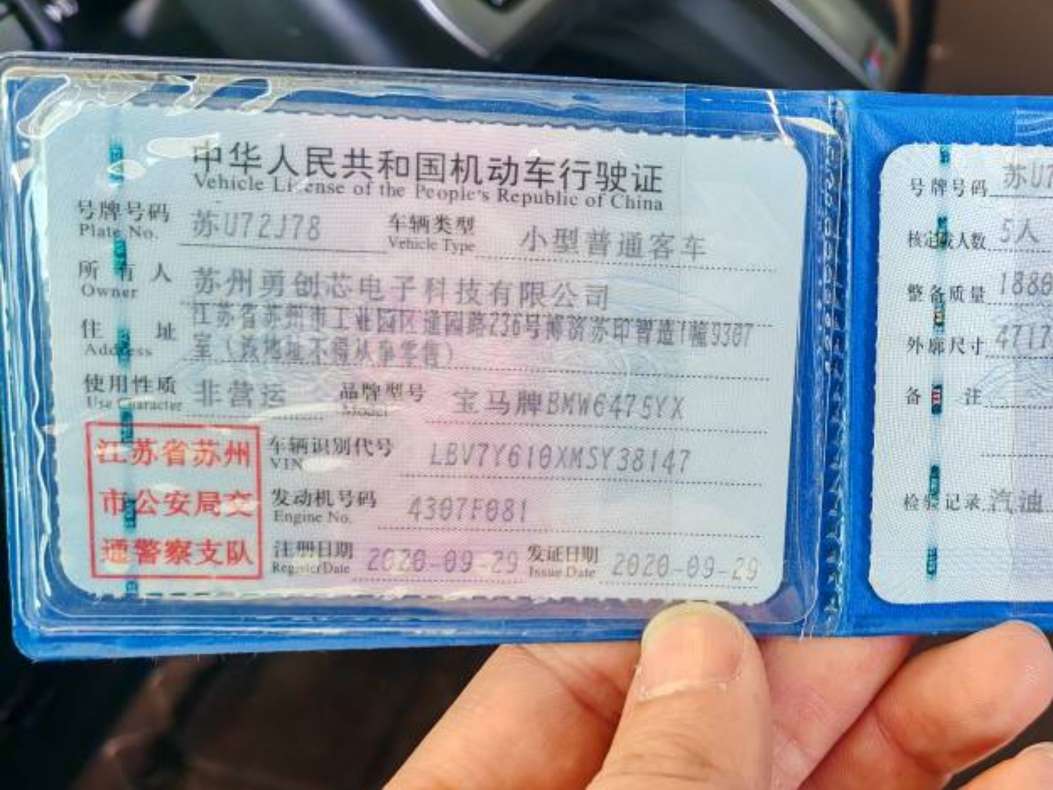 中华人民共和国机动车行驶证
Vehicle License of the People's Republic of China
号牌号码 苏U72J78 车辆类型 小型普通客车
Plate No. Vehicle Type
所有人 苏州勇创芯电子科技有限公司
Owner
住址 江苏省苏州市工业园区通园路236号博济苏印智造1幢9307
Address 室(该地址不得从事零售)
使用性质 非营运 品牌型号 宝马牌BMW6475YX
Use Character Model
车辆识别代号 LBV7Y610XMSY38147
VIN
发动机号码 4307F081
Engine No.
注册日期 2020-09-29 发证日期 2020-09-29
Register Date Issue Date
江苏省苏州
市公安局交
通警察支队
号牌号码 苏U7
核定载人数 5人
整备质量 1880
外廓尺寸 4717
备注
检验记录 汽油